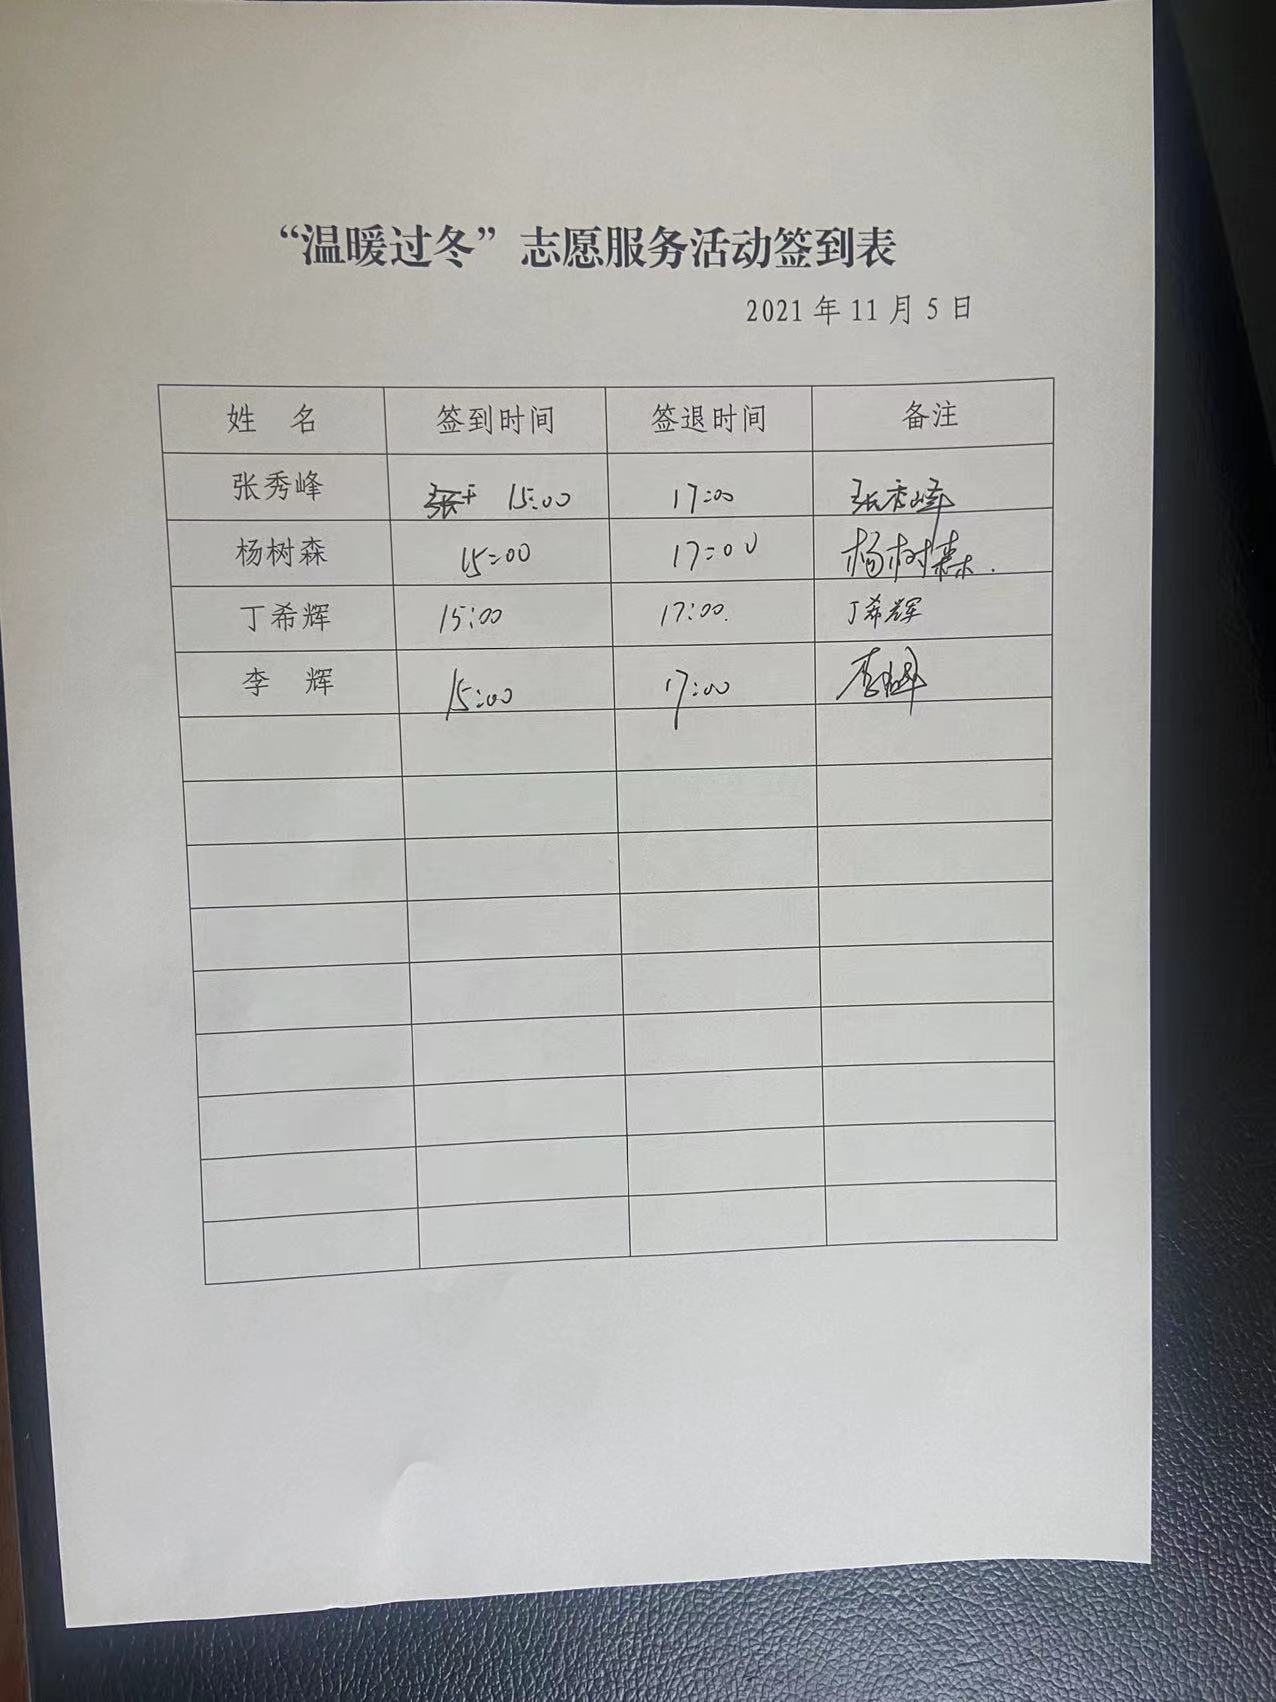 “温暖过冬”志愿服务活动签到表
2021年11月5日
姓 名 签到时间 签退时间 备注
张秀峰 15:00 17:00 张秀峰
杨树森 15:00 17:00 杨树森.
丁希辉 15:00 17:00. 丁希辉
李 辉 15:00 17:00 李辉